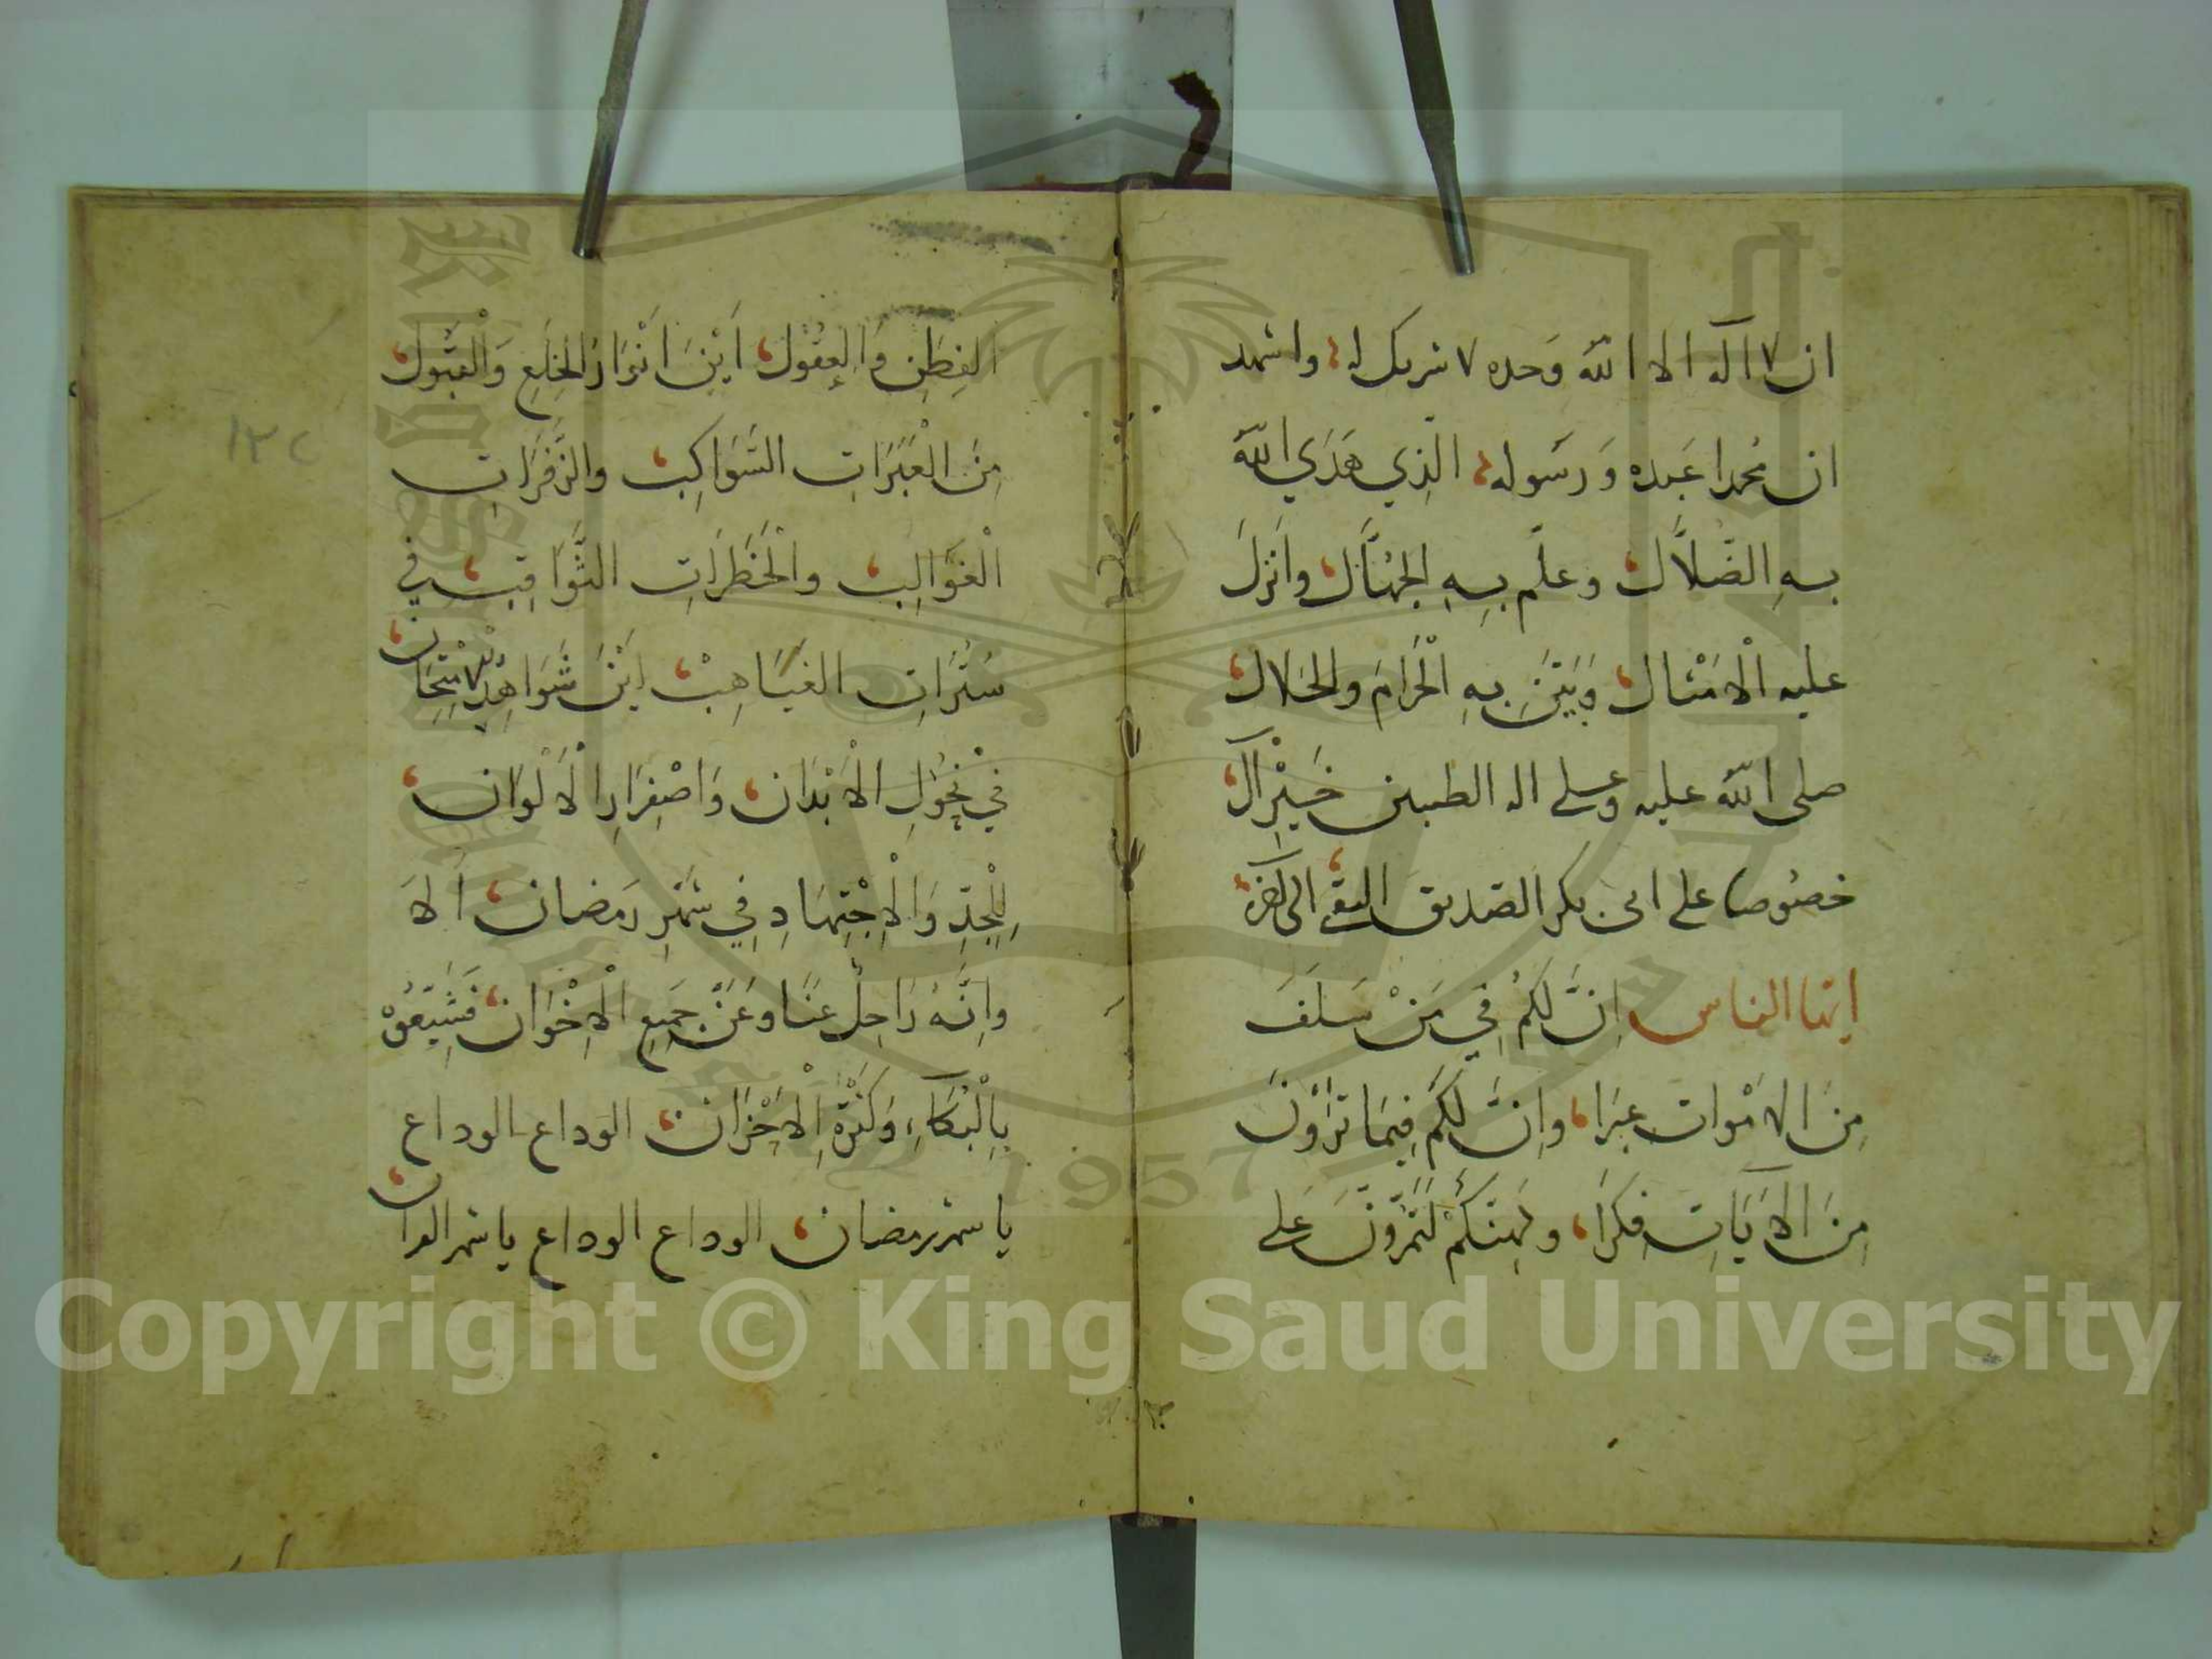 ان لا اله الا الله وَحده لا شريك له، واشهد
ان محمدا عَبده وَرسَوله، الذِي هَدَي الله
بهِ الضّلاَّل، وعلّم بِهِ الجهَّال، واَنزلَ
عليه الْاَمْثال، وَبَيَّنَ بِهِ الْحَرَامَ والحَلال،
صلى الله عليه وعلى اله الطيبين خَيْرِ آل،
خصُوصا على ابى بكر الصّديق التقى، الى اخره،
ايّها الناس اِنَّ لكمُ فِي مَنْ سَلَفَ
مِنَ الاَمْوات عِبَرا، واِنَّ لَكمُ فِيمَا تَرَوْنَ
مِنَ الاَيَاتِ فِكرَا،
لَتَمُرُّونَ عَلى
الفِطَنِ وَالعقُوُل، اَيْنَ اَنْوَارُ الخِلَعِ وَالْقَبُول،
مِنَ الْعَبَرَاتِ السَّوَاكِب، والزَّفَرَاتِ
الْغَوَالِب، والْخَطَرَاتِ الثَّوَاقِب، في
سُتُرَاتِ الغَيَاهِبْ، اَيْنَ شَوَاهِدُ الْاِمْتِحَان،
فِي نُحُولِ الْاَبْدَان، وَاصْفِرَارِ الْاَلْوَان،
لِلْجِدِّ وَالْاِجْتِهَادِ فِي شَهْرِ رَمضان، اَلاَ
وانَّهُ رَاحِلٌ عنَّا وعَنْ جَمِيعِ الْاِخْوَان، فَشَيِّعُوْهُ
بِالْبُكَآءِ، وَكَثْرَةِ الْاَحْزَان، الوداع الوداع
يا شهر رمضان، الوداع الوداع يا شهر القران،
١٣٢
1957
Copyright © King Saud University